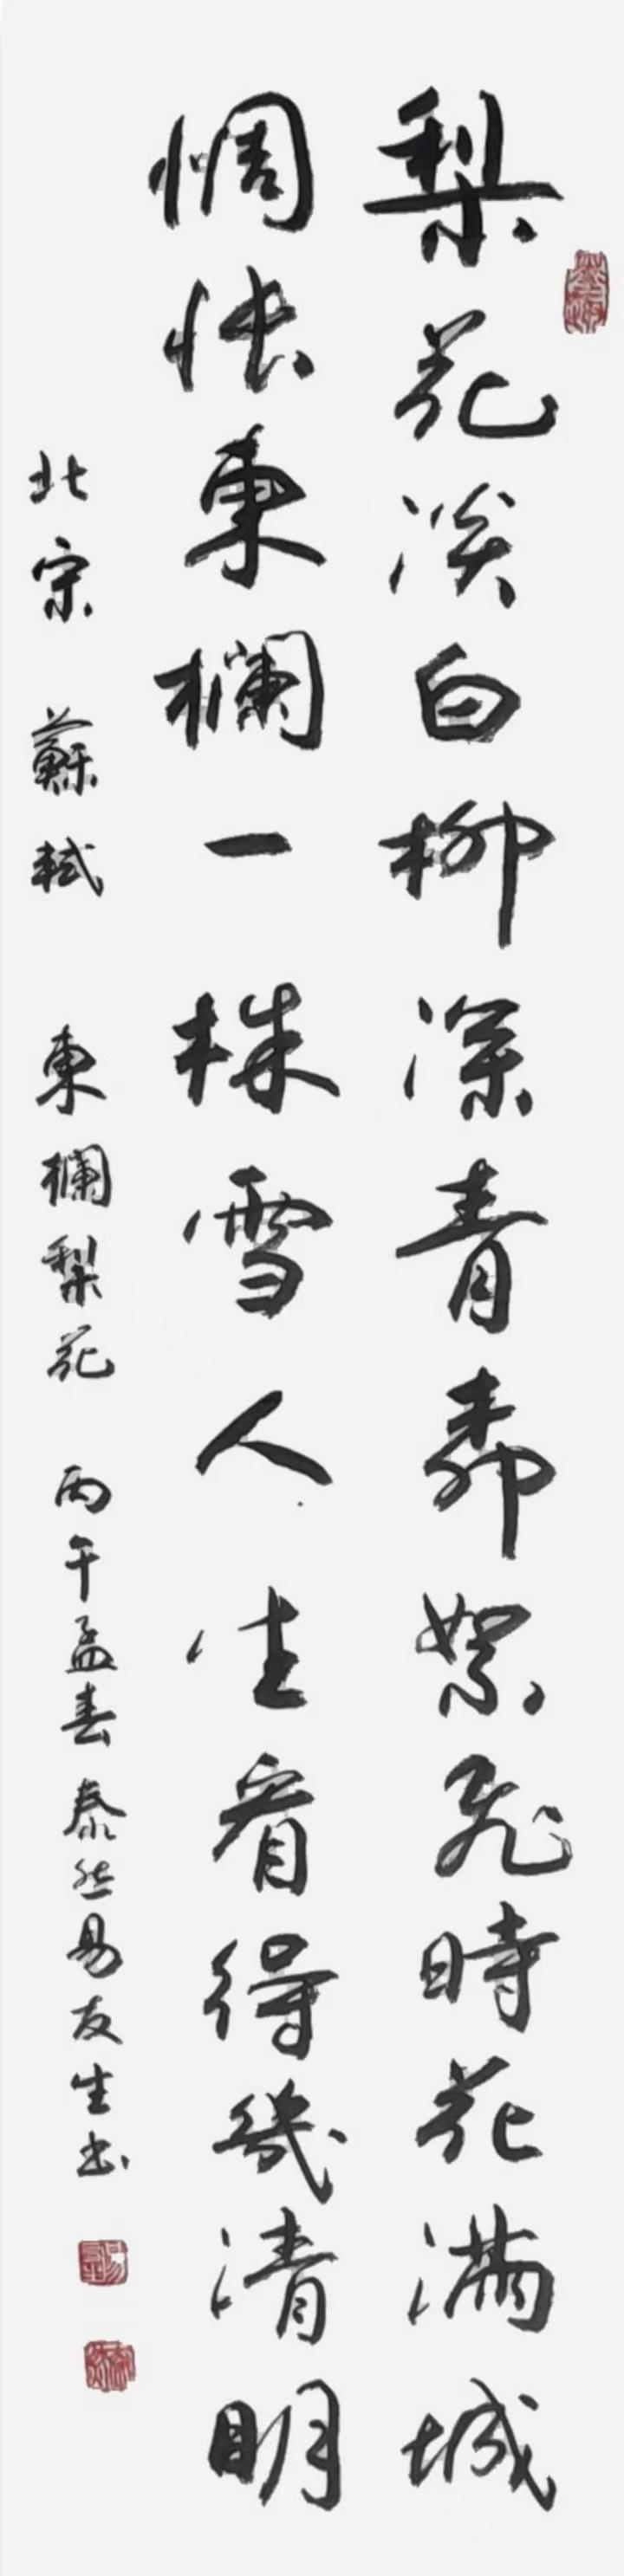 梨花淡白柳深青柳絮飛時花滿城
惆悵東欄一株雪人生看得幾清明
北宋 蘇軾 東欄梨花 丙午孟春泰然易友生书